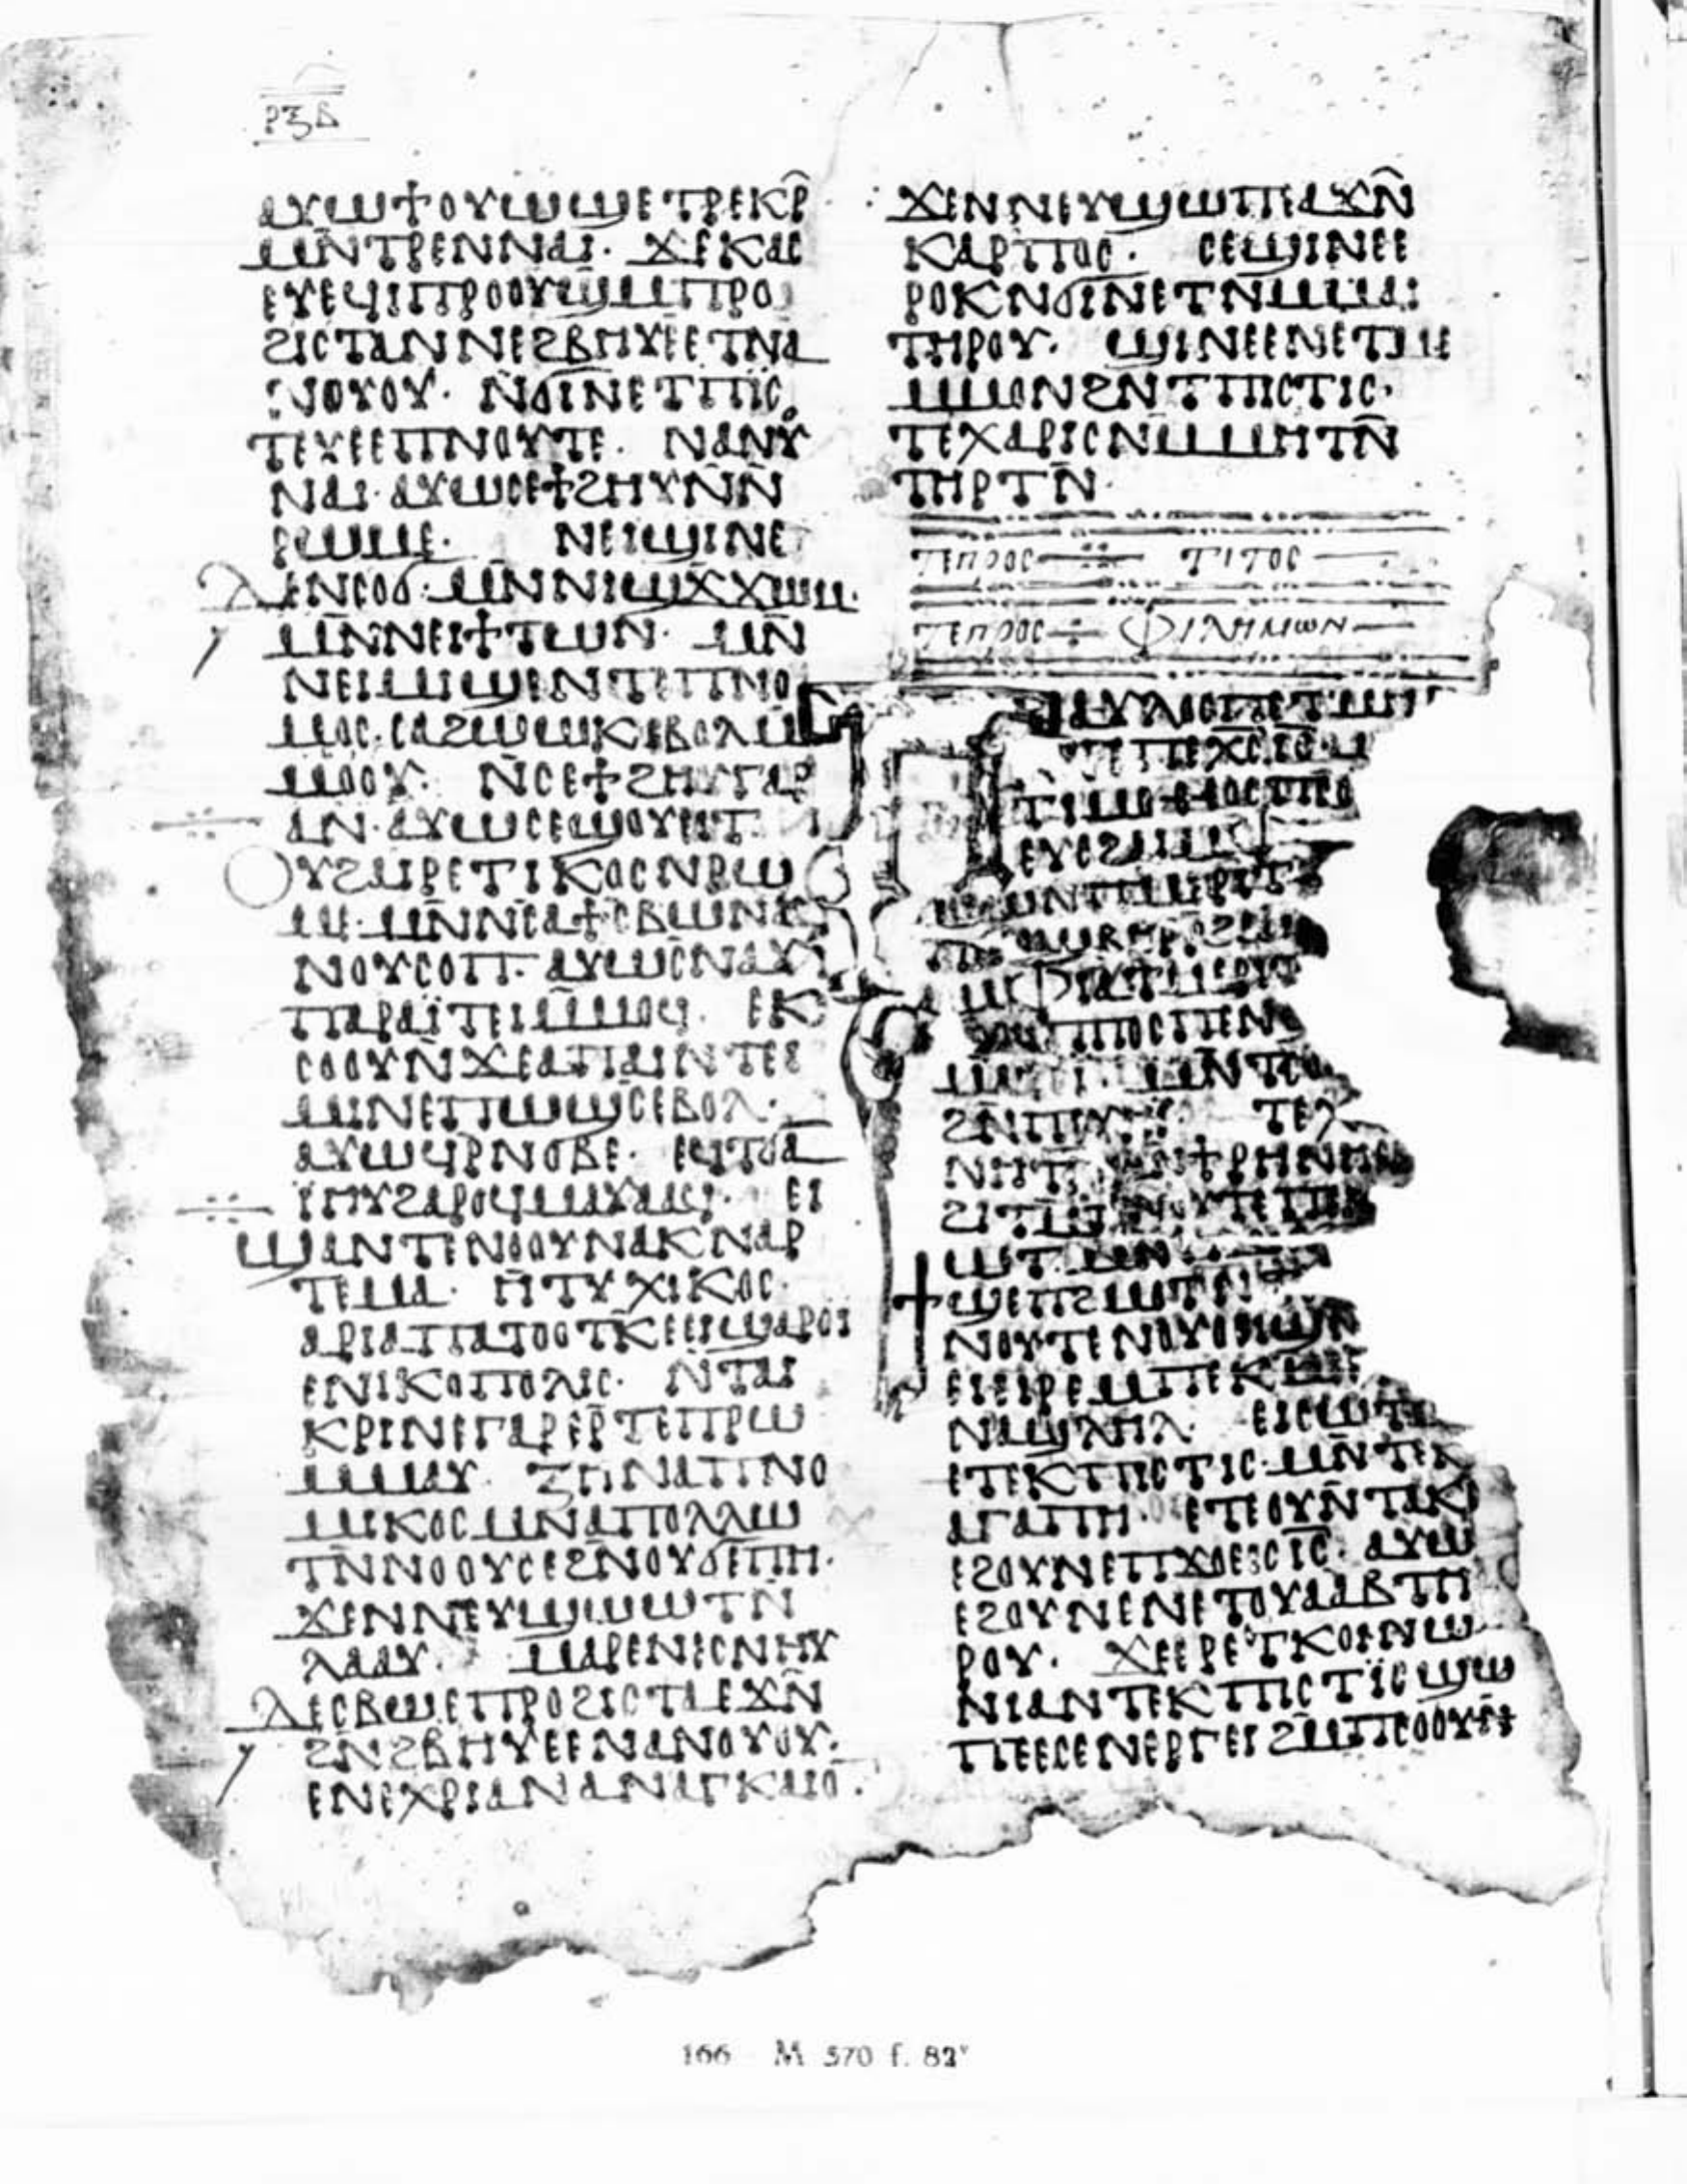 ⲣⲝⲇ
ⲁⲩⲱϯⲟⲩⲱϣⲉⲧⲣⲉⲕⲣ̄
ⲙⲛ̄ⲧⲣⲉⲛⲛⲁⲓ· ϫⲉⲕⲁⲥ
ⲉⲩⲉϥⲓⲡⲣⲟⲟⲩϣⲙ̄ⲡⲣⲟ
ϩⲓⲥⲧⲁⲛⲛⲉϩⲃⲏⲩⲉⲉⲧⲛⲁ
ⲛⲟⲩⲟⲩ· ⲛ̄ϭⲓⲛⲉⲧⲡⲓⲥ
ⲧⲉⲩⲉⲉⲡⲛⲟⲩⲧⲉ· ⲛⲁⲛⲟⲩ
ⲛⲁⲓ· ⲁⲩⲱⲥⲉϯϩⲏⲩⲛ̄ⲛ̄
ⲣⲱⲙⲉ· ⲛⲉⲓϣⲓⲛⲉ
ⲇⲉⲛⲥⲟϭ· ⲙⲛ̄ⲛⲓϣϫϫⲱⲙ·
ⲙⲛ̄ⲛⲉⲓϯⲧⲱⲛ· ⲙⲛ̄
ⲛⲉⲓⲙⲓϣⲉⲛⲧⲉⲡⲛⲟ
ⲙⲟⲥ· ⲥⲁϩⲱⲱⲕⲉⲃⲟⲗⲙ̄
ⲙⲟⲟⲩ· ⲛ̄ⲥⲉϯϩⲏⲩⲅⲁⲣ
ⲁⲛ· ⲁⲩⲱⲥⲉϣⲟⲩⲉⲓⲧ·
ⲟⲩϩⲁⲓⲣⲉⲧⲓⲕⲟⲥⲛⲣⲱ
ⲙⲉ· ⲙⲛ̄ⲛⲥⲁϯⲥⲃⲱⲛⲁϥ
ⲛⲟⲩⲥⲟⲡ· ⲁⲩⲱⲥⲛⲁⲩ
ⲡⲁⲣⲁⲓ̈ⲧⲉⲓⲙ̄ⲙⲟϥ· ⲉⲕ
ⲥⲟⲟⲩⲛ̄ϫⲉⲁⲡⲁⲓⲛⲧⲉⲓ
ⲙⲓⲛⲉⲡⲱϣⲥⲉⲃⲟⲗ·
ⲁⲩⲱϥⲣⲛⲟⲃⲉ· ⲉϥⲧϭⲁ
ⲓ̈ⲏⲩϩⲁⲣⲟϥⲙⲁⲩⲁⲁϥ· ⲉⲓ
ϣⲁⲛⲧⲉⲛⲟⲟⲩⲛⲁⲕⲛⲁⲣ
ⲧⲉⲙⲁ· ⲏⲧⲩⲭⲓⲕⲟⲥ·
ⲁⲣⲓⲁⲡⲁⲧⲟⲟⲧⲕⲉⲉⲓϣⲁⲣⲟⲓ̈
ⲉⲛⲓⲕⲟⲡⲟⲗⲓⲥ· ⲛ̄ⲧⲁⲓ
ⲕⲣⲓⲛⲉⲅⲁⲣⲉⲣ̄ⲧⲉⲡⲣⲱ
ⲙⲙⲁⲩ· ⲍⲏⲛⲁⲡⲛⲟ
ⲙⲓⲕⲟⲥⲙⲛⲁⲡⲟⲗⲗⲱ
ⲧⲛ̄ⲛⲟⲟⲩⲥⲉϩⲛ̄ⲟⲩϭⲉⲡⲏ·
ϫⲉⲛⲛⲉⲩϣⲱⲱⲧⲛ̄
ⲗⲁⲁⲩ· ⲙⲁⲣⲉⲛⲉⲥⲛⲏⲩ
ⲇⲉⲥⲃⲱⲉⲡⲣⲟϩⲓⲥⲧⲁⲉϫⲛ̄
ϩⲛϩⲃⲏⲩⲉⲉⲛⲁⲛⲟⲩⲟⲩ·
ⲉⲛⲉⲭⲣⲓⲁⲛⲁⲛⲁⲅⲕⲁⲓⲟ
ϫⲉⲛⲛⲉⲩϣⲱⲡⲉⲁϫⲛ̄
ⲕⲁⲣⲡⲟⲥ· ⲥⲉϣⲓⲛⲉⲉ
ⲣⲟⲕⲛϭⲓⲛⲉⲧⲛⲙⲙⲁⲓ
ⲧⲏⲣⲟⲩ· ϣⲓⲛⲉⲉⲛⲉⲧⲙⲉ
ⲙⲙⲟⲛϩⲛ̄ⲧⲡⲓⲥⲧⲓⲥ·
ⲧⲉⲭⲁⲣⲓⲥⲛⲙⲙⲏⲧⲛ̄
ⲧⲏⲣⲧⲛ̄·
ⲧⲉⲡⲣⲟⲥ ⲧⲓⲧⲟⲥ
ⲧⲉⲡⲣⲟⲥ ⲫⲓⲗⲏⲙⲱⲛ
ⲡⲁⲩⲗⲟⲥⲡⲉⲧⲙⲏⲣ
ⲡⲉⲭⲥ̄ⲓⲥ̄·ⲙ
ⲧⲓⲙⲟⲑⲉⲟⲥⲡⲥⲟ
ⲉⲩⲥϩⲁⲓ
ⲙⲱⲛⲡⲙⲉⲣⲓⲧ
ϣⲃⲏⲣ
ⲡⲟⲥⲡⲉⲛ
ⲙⲛ̄ⲧⲥⲟ
ϩⲙ̄ⲡⲉⲩⲏⲓ· ⲧⲉⲭ
ⲛⲏⲧⲛ ⲙⲛϯⲣⲏⲛⲏ
ϩⲓⲧⲙ̄ⲡⲛⲟⲩⲧⲉⲡⲉ
ⲱⲧ
ϯϣⲉⲡϩⲙⲟⲧ
ⲛⲟⲩⲧⲉⲛⲟⲩⲟⲉⲓϣ
ⲉⲓⲉⲓⲣⲉⲙⲡⲉⲕⲙⲉⲉ
ⲛⲁϣⲗⲏⲗ· ⲉⲓⲥⲱⲧⲙ
ⲉⲧⲉⲕⲡⲓⲥⲧⲓⲥ·ⲙⲛ̄ⲧⲉⲕ
ⲁⲅⲁⲡⲏ· ⲉⲧⲉⲟⲩⲛ̄ⲧⲁⲕ
ⲉϩⲟⲩⲛⲉⲡϫⲟⲉⲓⲥⲓⲥ̄· ⲁⲩⲱ
ⲉϩⲟⲩⲛⲉⲛⲉⲧⲟⲩⲁⲁⲃⲧⲏ
ⲣⲟⲩ· ϫⲉⲉⲣⲉⲧⲕⲟⲓⲛⲱ
ⲛⲓⲁⲛⲧⲉⲕⲡⲓⲥⲧⲓⲥϣⲱ
ⲡⲉⲉⲥⲉⲛⲉⲣⲅⲉⲓϩⲙⲡⲥⲟⲟⲩⲛ
166 M 570 f. 82ᵛ